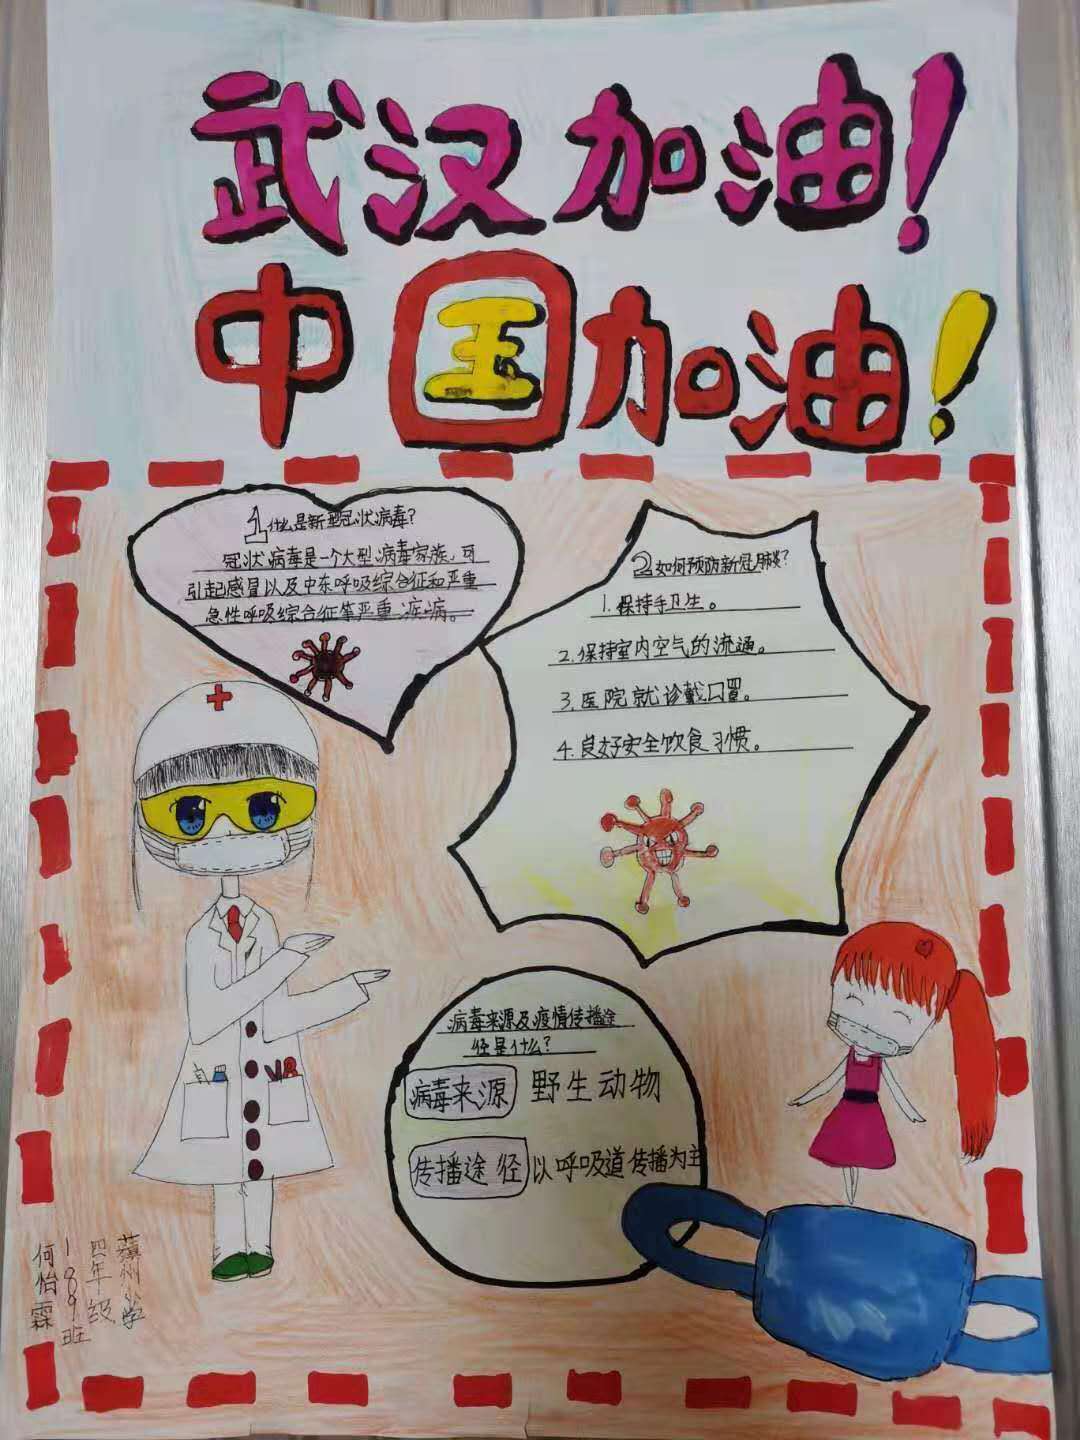 武汉加油!
中国加油!
1什么是新型冠状病毒?
冠状病毒是一个大型病毒家族,可
引起感冒以及中东呼吸综合征和严重
急性呼吸综合征等严重疾病。
2如何预防新冠肺炎?
1.保持手卫生。
2.保持室内空气的流通。
3.医院就诊戴口罩。
4.良好安全饮食习惯。
病毒来源及疫情传播途
径是什么?
病毒来源 野生动物
传播途径 以呼吸道传播为主
VR
蘋州小学
四年级
189班
何怡霖